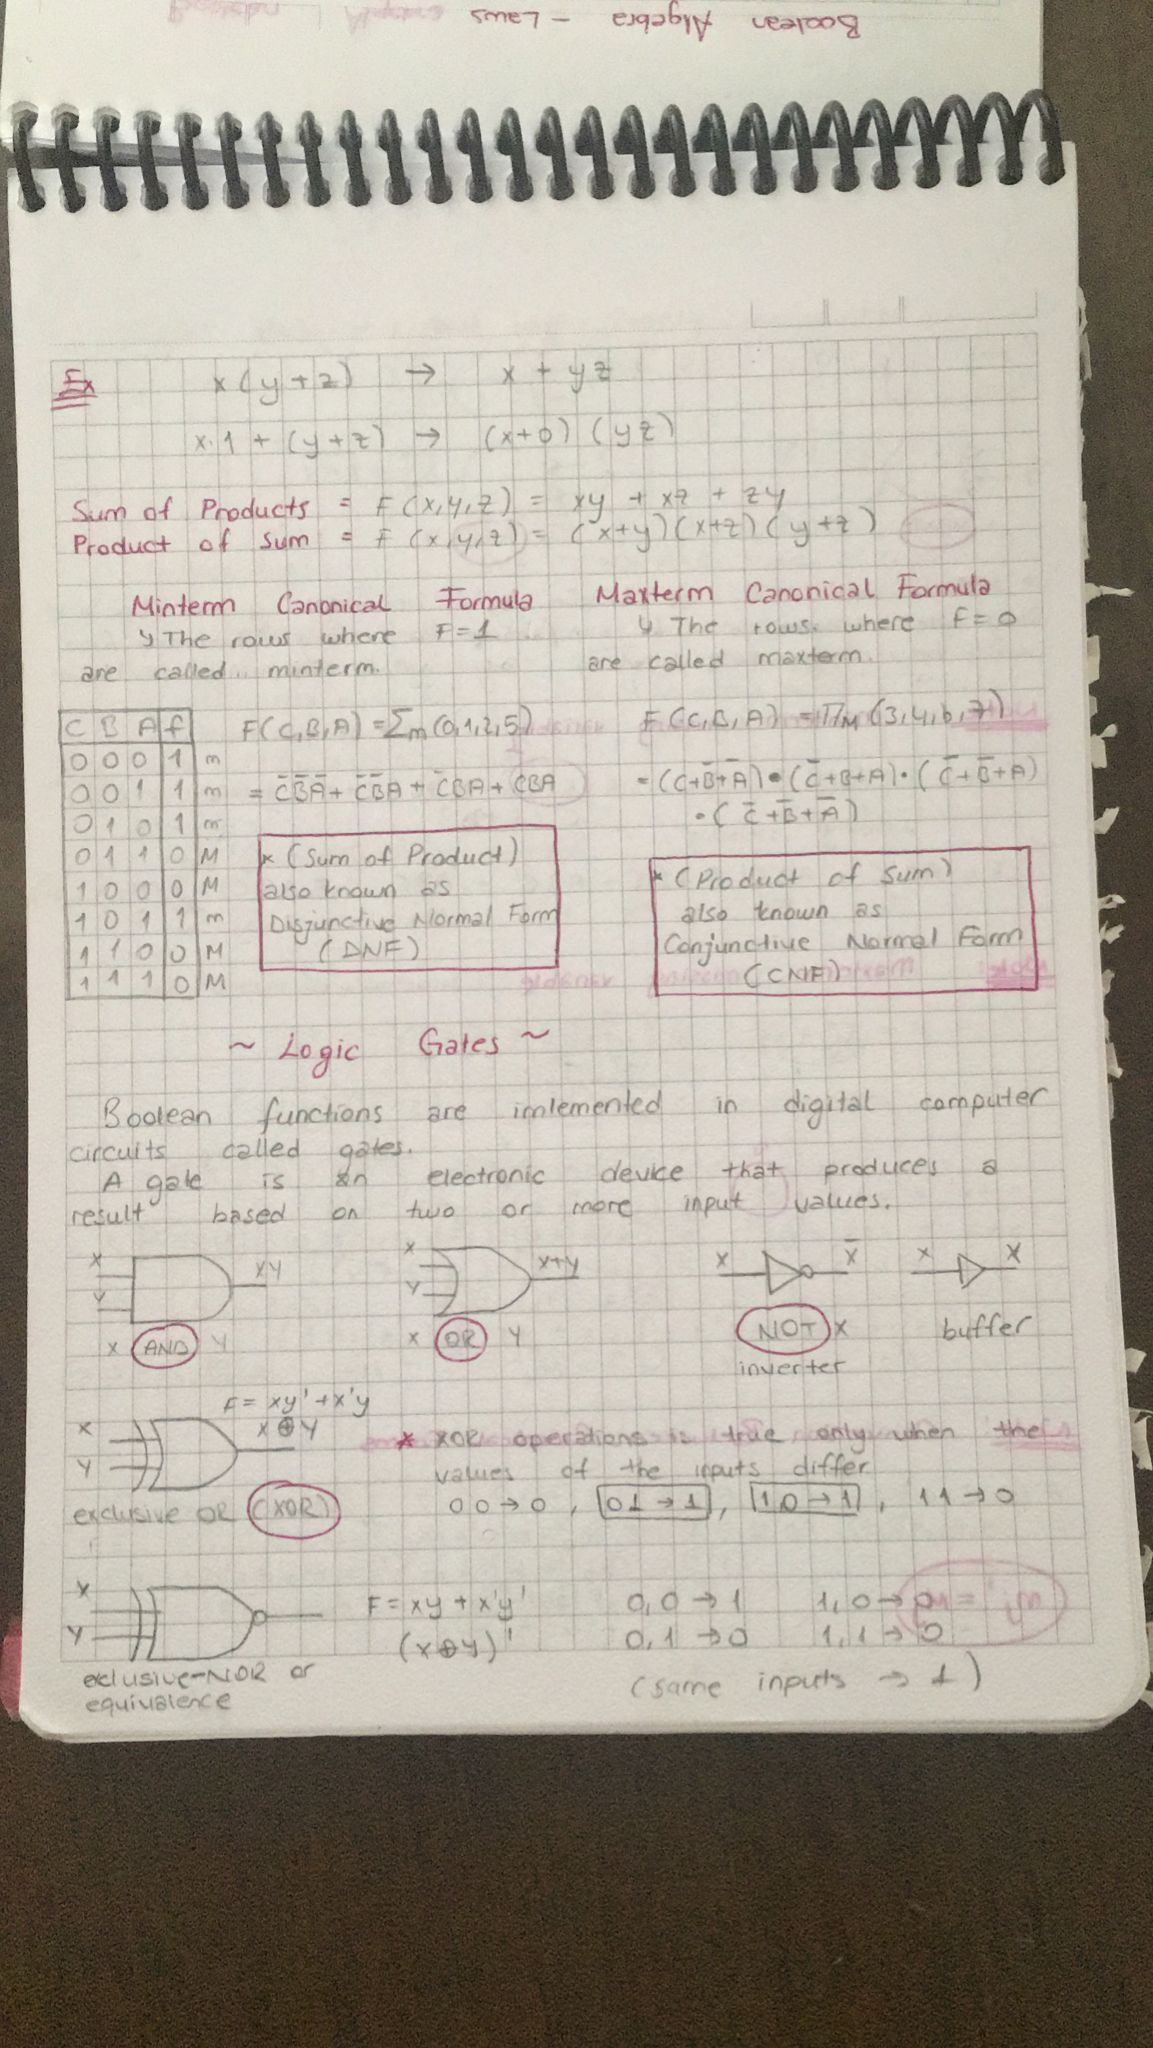 Boolean Algebra - Laws
Ex x(y+z) → x + yz
x.1 + (y+z) → (x+0) (yz)
Sum of Products = F(x,y,z) = xy + xz + zy
Product of sum = F(x,y,z) = (x+y)(x+z)(y+z)
Minterm Canonical Formula
↳ The rows where F=1
are called minterm.
Maxterm Canonical Formula
↳ The rows where F=0
are called maxterm.
C B A f
0 0 0 1 m
0 0 1 1 m
0 1 0 1 m
0 1 1 0 M
1 0 0 0 M
1 0 1 1 m
1 1 0 0 M
1 1 1 0 M
F(C,B,A) = Σm(0,1,2,5)
= C̄B̄Ā + C̄B̄A + C̄BA + CBA
* (Sum of Product)
also known as
Disjunctive Normal Form
(DNF)
F(C,B,A) = ΠM(3,4,6,7)
= (C+B̄+Ā)•(C̄+B+A)•(C̄+B̄+A)
•(C̄+B̄+Ā)
* (Product of Sum)
also known as
Conjunctive Normal Form
(CNF)
~ Logic Gates ~
Boolean functions are imlemented in digital computer
circuits called gates.
A gate is an electronic device that produces a
result based on two or more input values.
X Y XY
X AND Y
X Y X+Y
X OR Y
X X̄
NOT X
inverter
X X
buffer
F = xy' + x'y
X Y X⊕Y
exclusive OR (XOR)
* XOR operations is true only when the
values of the inputs differ
00→0, 01→1, 10→1, 11→0
X Y
exclusive-NOR or
equivalence
F = xy + x'y'
(x⊕y)'
0,0→1 1,0→0
0,1→0 1,1→0
(same inputs → 1)